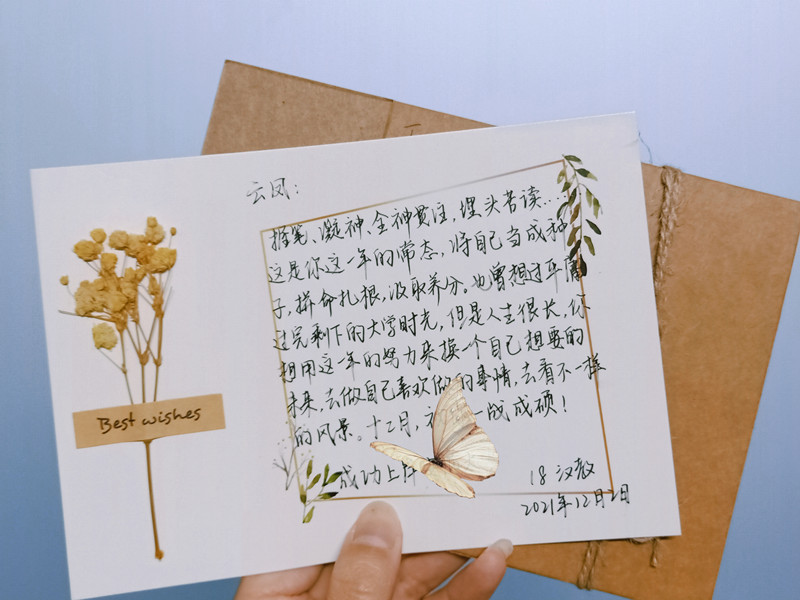 云凤：
握笔、凝神、全神贯注，埋头苦读……
这是你这一年的常态，将自己当成种
子，拼命扎根，汲取养分。也曾想过平庸
过完剩下的大学时光，但是人生很长，你
想用这一年的努力来换一个自己想要的
未来，去做自己喜欢做的事情，去看不一样
的风景。十二月，一战成硕！
成功上岸
18 汉教
2021年12月2日
Best wishes